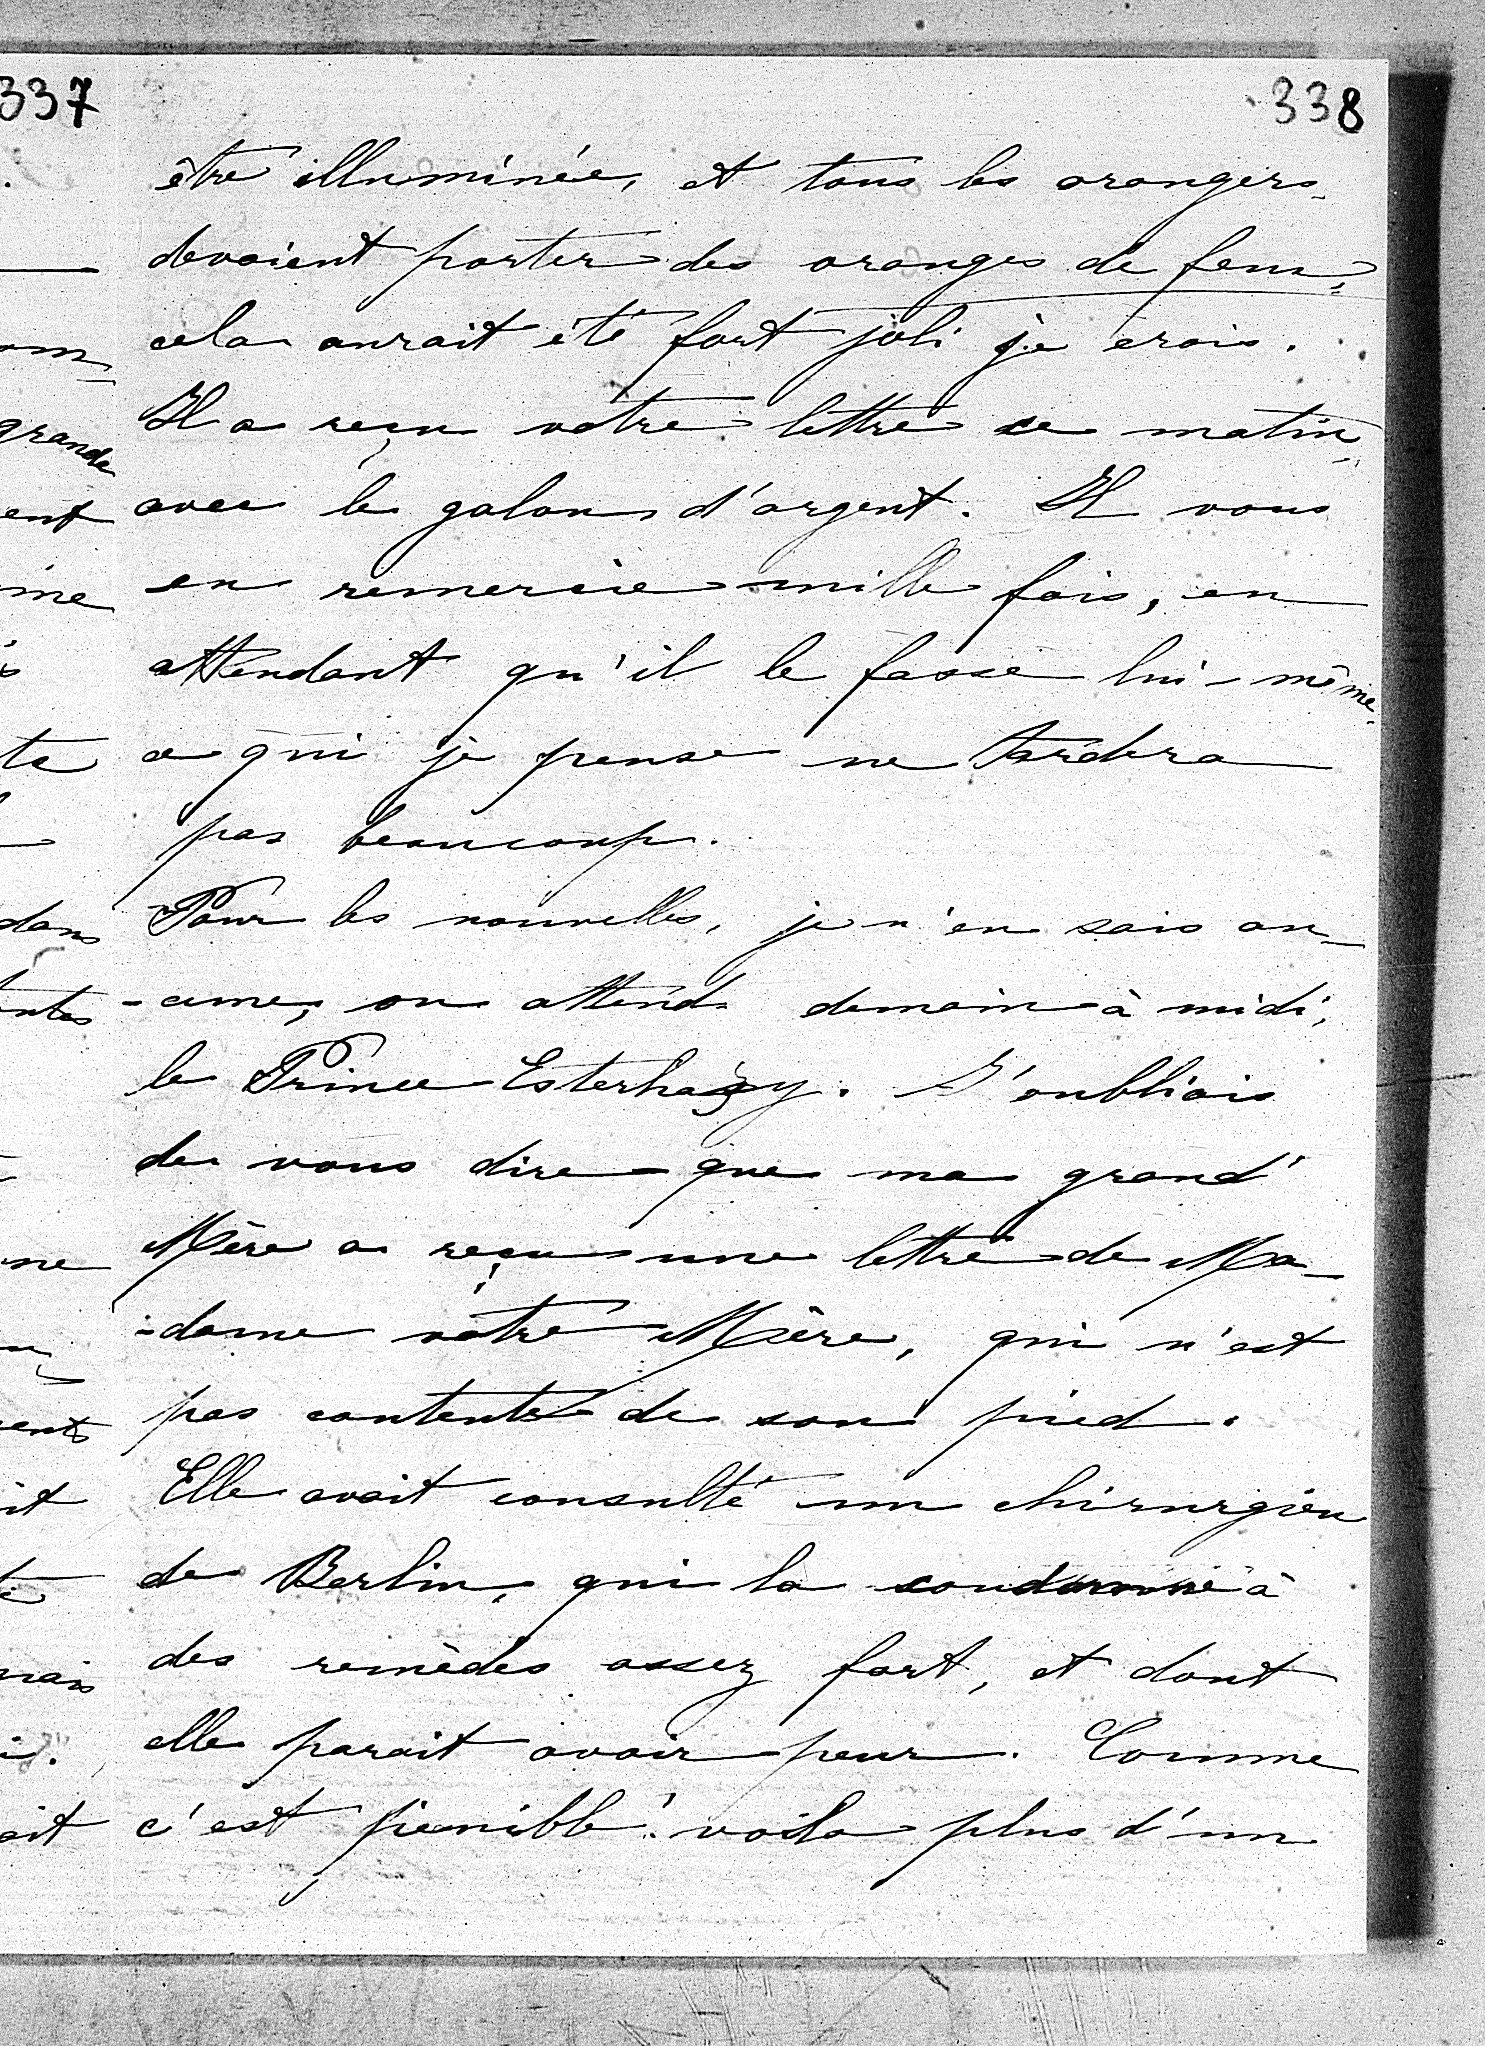 337
338
être illuminée, et tous les orangers
devaient porter des oranges de feu,
cela aurait été fort joli je crois.
Il a reçu votre lettre ce matin,
avec le galon d'argent. Il vous
en remercie mille fois, en
attendant qu'il le fasse lui-même
a qui je pense ne tardera
pas beaucoup.
Pour les nouvelles, je n'en sais au-
-cune, on attend demain à midi,
le Prince Esterhazy. J'oubliais
de vous dire que ma grand'
Mère a reçu une lettre de Ma-
-dame vôtre Mère, qui n'est
pas contente de son pied.
Elle avait consulté un chirurgien
de Berlin, qui la condamne à
des remèdes assez fort, et dont
elle parait avoir peur. Comme
c'est pénible! voila plus d'un
grande
ent
te
dans
ne
it
mais
ait